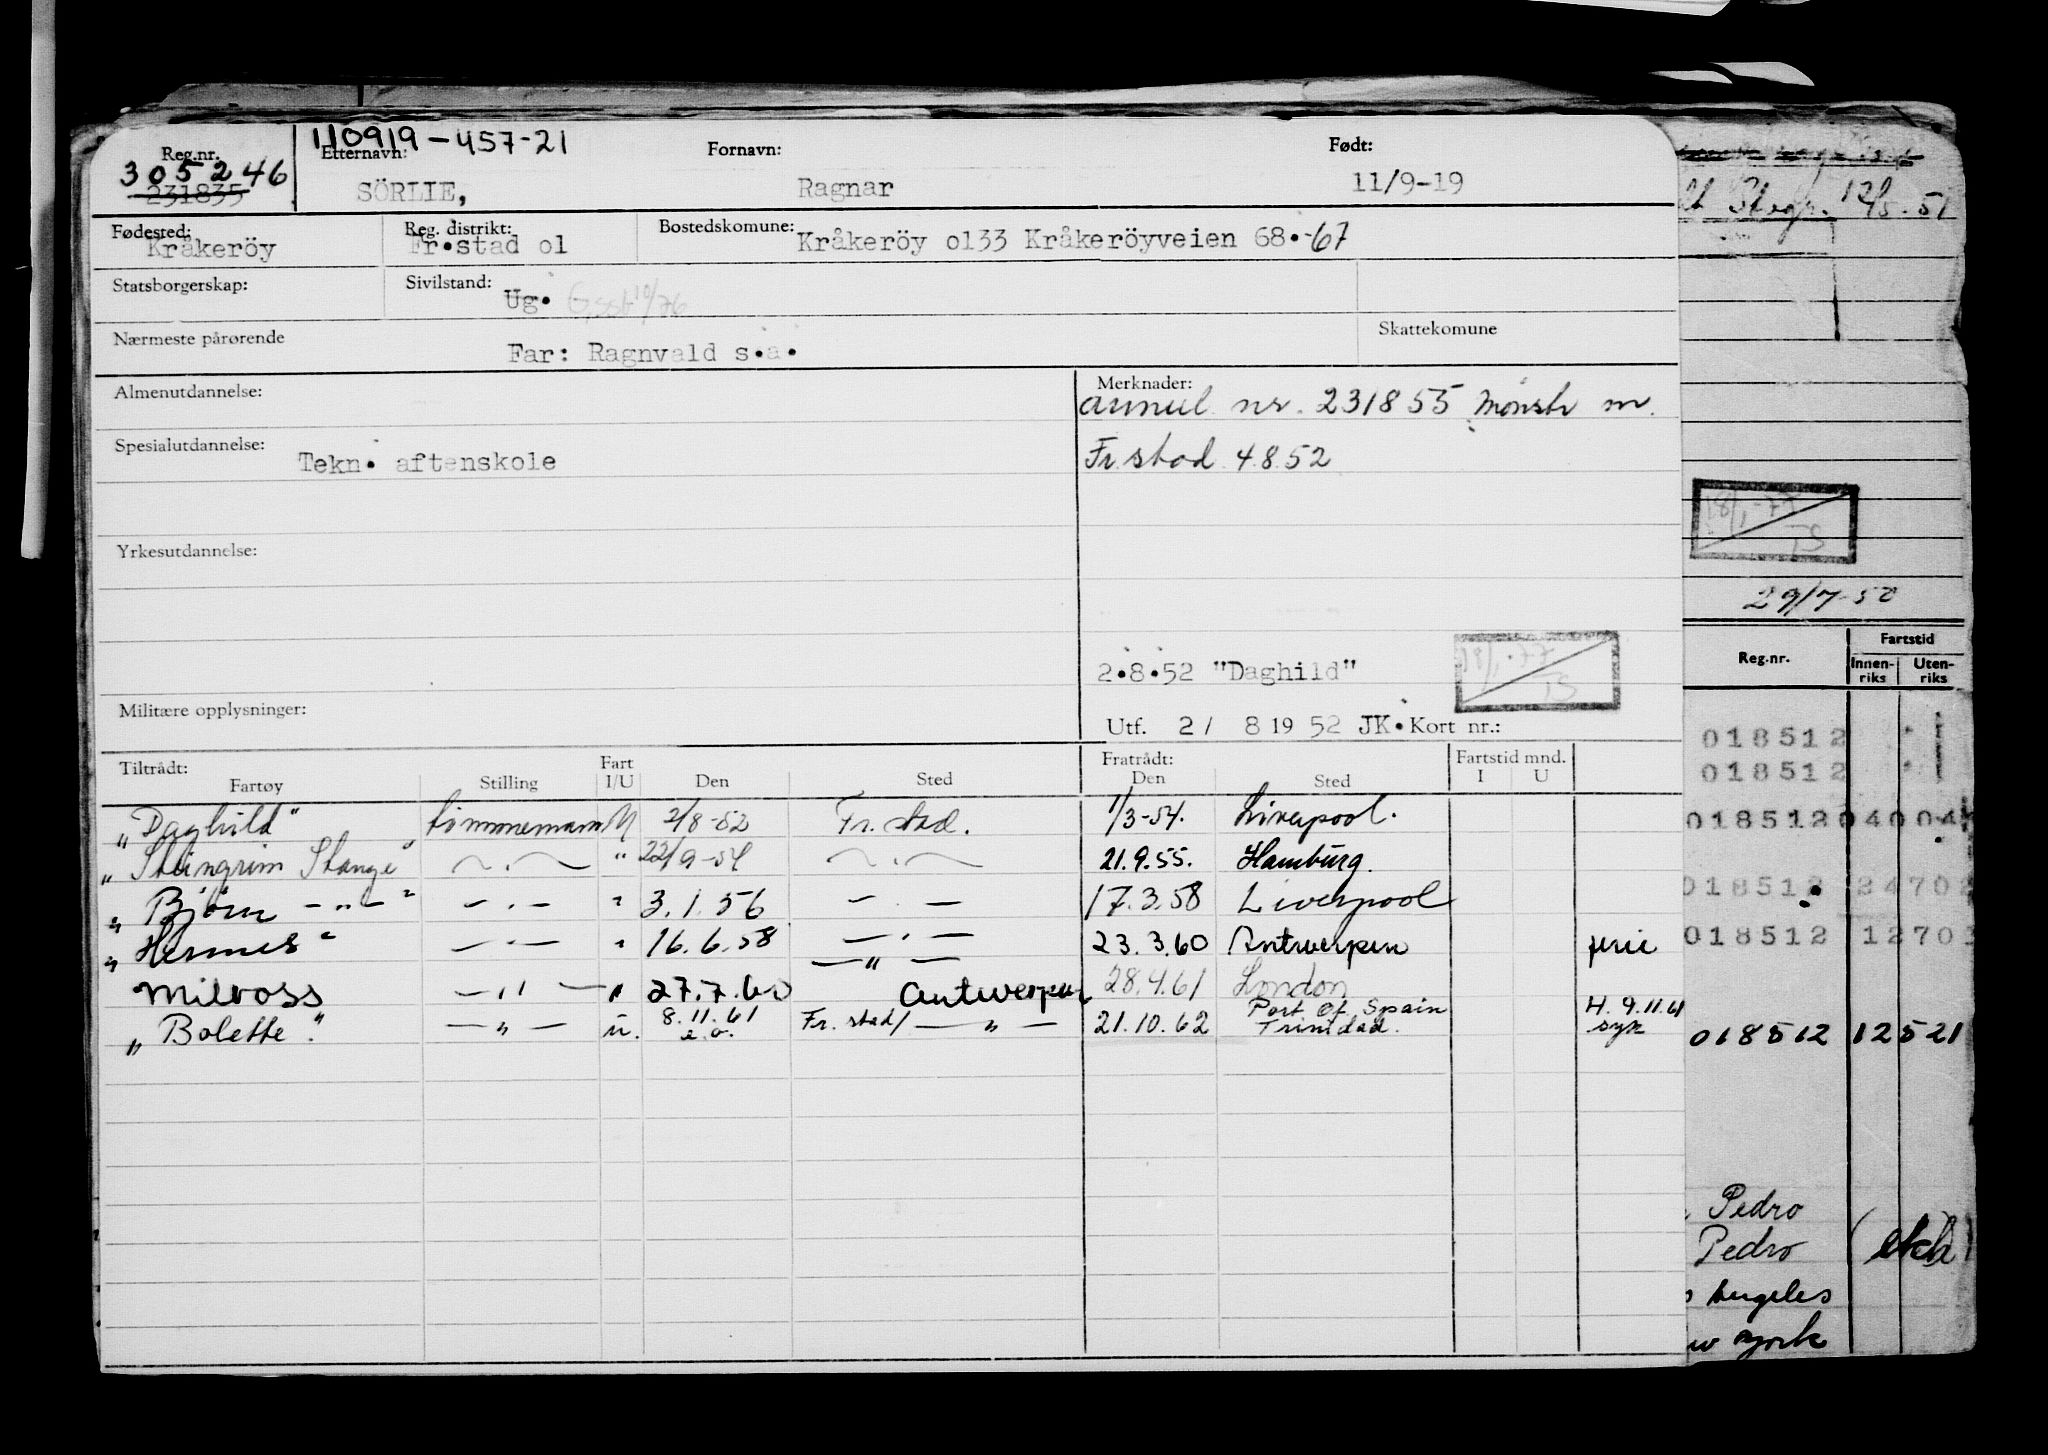 110919-457-21
Reg.nr. Etternavn: Fornavn: Født:
305246
231835 SÖRLIE, Ragnar 11/9-19
Fødested: Reg. distrikt: Bostedskomune:
Kråkeröy Fr.stad ol Kråkeröy ol33 Kråkeröyveien 68.-67
Statsborgerskap: Sivilstand:
Ug.
Nærmeste pårørende Skattekomune
Far: Ragnvald s.a.
Almenutdannelse: Merknader:
annul. nr. 231855 Mønstr m.
Spesialutdannelse: Tekn. aftenskole Fr.stad 4.8.52
Yrkesutdannelse:
2.8.52 "Daghild" 18/1-77 TS
Militære opplysninger: Utf. 2/ 8 19 52 JK. Kort nr.:
Tiltrådt: Fart Fratrådt: Fartstid mnd.
Fartøy Stilling I/U Den Sted Den Sted I U
"Daghild" tømmermann U 2/8-52 Fr. stad. 1/3-54. Liverpool.
"Steingrim Stange" — . — " 22/9-54 — . — 21.9.55. Hamburg.
"Bjørn — " — " — . — " 3.1.56 — . — 17.3.58 Liverpool
"Hermes" — . — " 16.6.58 — . — 23.3.60 Antwerpen ferie
— " —
Milross — " — " 27.7.60 Antwerpen 28.4.61 London
"Bolette". — " — u. 8.11.61 e.o. Fr. stad/ — " — 21.10.62 Port Of Spain Trinidad. H. 9.11.61 syk
12/5. 51
18/1-77 TS
29/7-50
Reg.nr. Fartstid
Innen-riks Uten-riks
018512
018512
018512 040 04
018512 2470
018512 1270
018512 12521
Pedro
Pedro
Angeles
York